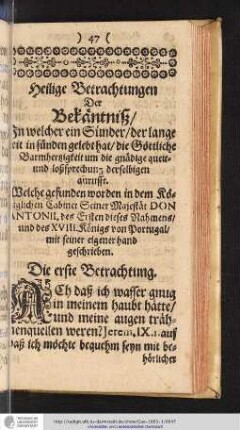 ) 47 (
Heilige Betrachtungen
Der
Bekäntniß/
In welcher ein Sünder/ der lange
zeit in sünden gelebt hat/ die Göttliche
Barmhertzigkeit um die gnädige queit-
und loßsprechung derselbigen
anrufft.
Welche gefunden worden in dem Kö-
niglichen Cabinet Seiner Majestät DON
ANTONII, des Ersten dieses Nahmens/
und des XVIII. Königs von Portugal/
mit seiner eigener hand
geschrieben.
Die erste Betrachtung.
ACh daß ich wasser gnug
in meinem haubt hätte/
und meine augen träh-
nenquellen weren? Jerem. IX. 1. auf
daß ich möchte bequehm seyn mit be-
hörlicher